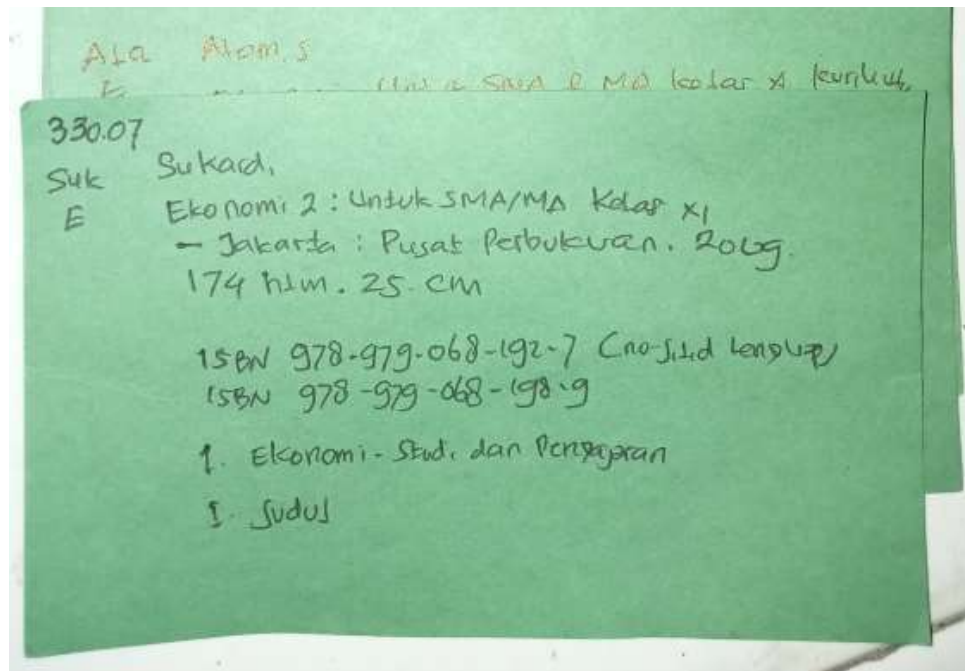 Ala Atom.s
E SMA & MA kelas X
330.07
Suk Sukard,
E Ekonomi 2 : Untuk SMA/MA Kelas XI
- Jakarta : Pusat Perbukuan. 2009.
174 hlm. 25. cm
ISBN 978-979-068-192-7 (no. jilid lengkap)
ISBN 978-979-068-198-9
1. Ekonomi - Studi dan Pengajaran
I. Judul